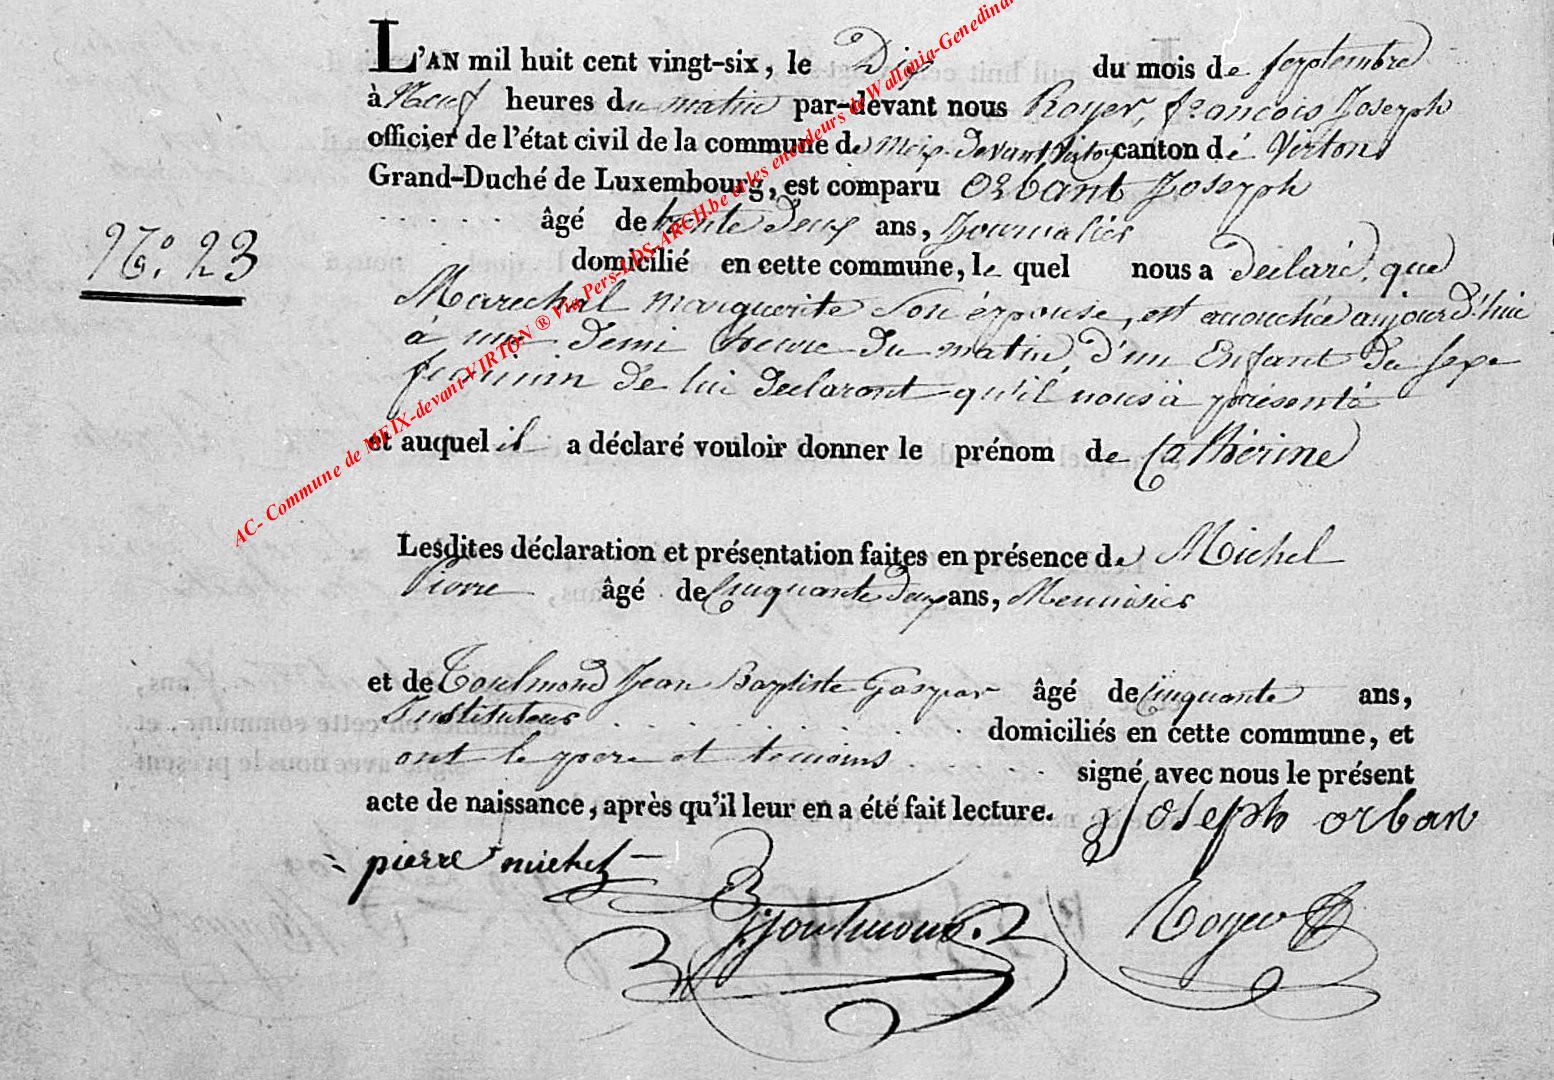 L'AN mil huit cent vingt-six, le Dix du mois de septembre
à Neuf heures du matin par-devant nous Royer, françois Joseph
officier de l'état civil de la commune de Meix-devant Virton canton dé Virton
Grand-Duché de Luxembourg, est comparu Orbant Joseph
âgé de trente deux ans, Journalier
No. 23
domicilié en cette commune, le quel nous a declaré, que
Marechal marguerite son épouse, est acouchée aujourd'hui
à une demi heure du matin d'un Enfant du sexe
feminin de lui declarant qu'il nous à présenté
et auquel il a déclaré vouloir donner le prénom de Cathérine
Lesdites déclaration et présentation faites en présence de Michel
Pierre âgé de Cinquante deux ans, Menuisier
et de Toulmond Jean Baptiste Gaspar âgé de Cinquante ans,
Instituteur domiciliés en cette commune, et
ont le pere et temoins signé avec nous le présent
acte de naissance, après qu'il leur en a été fait lecture. Joseph orban
pierre michel
Toulmond. Royer
AC- Commune de MEIX-devant-VIRTON ® Via Pers-LDS-ARCH.be et les encodeurs de Wallonia-Genedinan